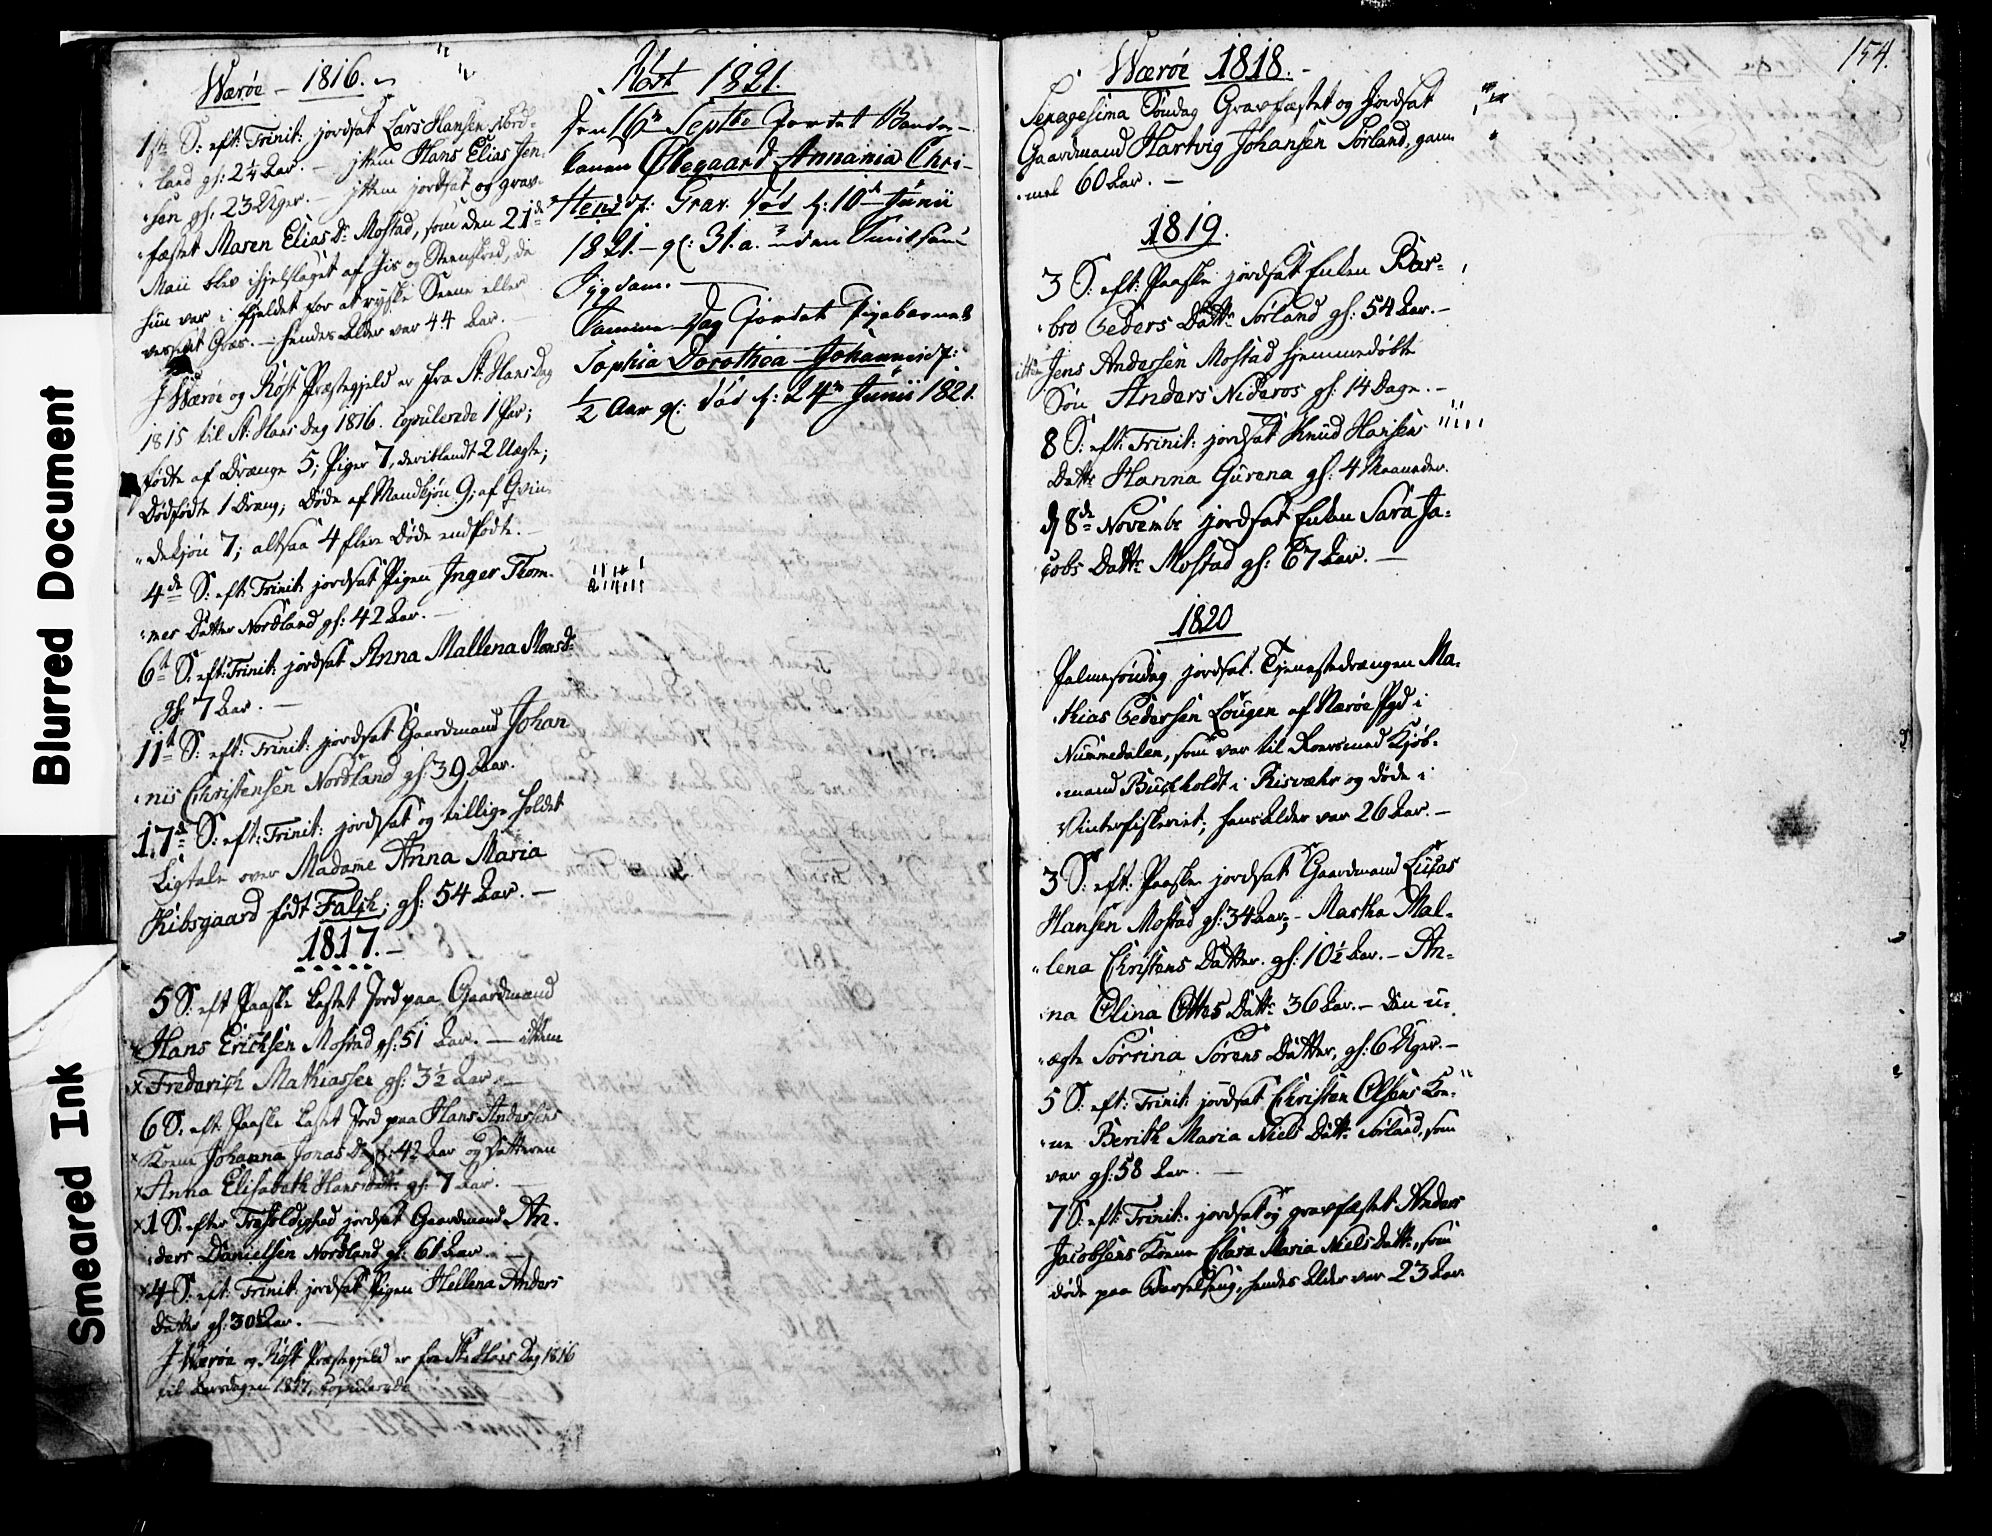 Blurred Document
Smeared Ink
Wærøe – 1816.
1ste S: eft: Trinit: jordsat Lars Hansen Nord-
land gl: 24 Aar. – ittem Hans Elias Jen-
sen gl: 23 Uger. – ittem jordsat og grav-
fæstet Maren Elias Dr Mostad, som den 21de
Maii blev ihjelslaget af Jis og Steenskred, da
hun var i Fjeldet for at ryske Seene eller
Græs. – hendes Alder var 44 Aar.
I Wærøe og Røst Præstegjeld er fra St: Hans Dag
1815 til St: Hans Dag 1816. Copulerede 1 Par;
fødte af Drænge 5; Piger 7, deriblandt 2 Uægte;
Dødfødte 1 Dreng; Døde af Mandkjøn 9; af Qvin-
dekjøn 7; altsaa 4 flere Døde end fødte. –
4de S: eft: Trinit: jordsat Pigen Inger Thom-
mes Datter Nordland gl: 42 Aar. –
6t S: eft: Trinit: jordsat Anna Mallena Monsdr
gl: 7 Aar. –
11t S: eft: Trinit: jordsat Gaardmand Johan-
nis Christensen Nordland gl: 39 Aar.
17d S: eft: Trinit: jordsat og tillige holdet
Ligtale over Madame Anna Maria
Kibsgaard født Falch; gl: 54 Aar. –
1817. –
5 S: eft Paaske kastet Jord paa Gaardmand
Hans Erichsen Mostad gl: 51 Aar. – ittem
x Frederich Mathiassen gl: 3½ Aar. –
6 S. eft Paaske kastet Jord paa Hans Andersens
x Kone Johanna Jonas Dr gl: 42 Aar og Datteren
x Anna Elisabeth Hansdatter gl: 7 Aar. –
x 1 S: efter Trefoldighed jordsat Gaardmand An-
ders Danielsen Nordland gl: 61 Aar. –
x 4 S: eft: Trinit: jordsat Pigen Hellena Anders
Datter gl: 30 Aar. –
I Wærøe og Røst Præstegjeld er fra St: Hans Dag 1816
til 1817, Copulerede
Røst 1821.
Den 16de Septbr Jordet Bonde-
konen Ølegaard Annania Chri-
stensdr: Grav. Død d: 10de Junii
1821. – gl: 31. a.
Sygdom. –
Samme Dag Jordet Pigebarnet
Sophia Dorothea Johannisdr:
½ Aar gl: død d: 24de Junii 1821.
154.
Wærøe 1818. –
Sexagesima Søndag Gravfæstet og Jordsat
Gaardmand Hartvig Johansen Sørland, gam-
mel 60 Aar. –
1819.
3 S: eft: Paaske jordsat Enken Bar-
bro Peders Dattr Sørland gl: 54 Aar. –
ittem Jens Andersen Mostad hjemmedøbte
Søn Anders Nideros gl: 14 Dage. –
8 S: eft: Trinit: jordsat Knud Hansens
Dattr Hanna Gurena gl: 4 Maaneder.
d 8de Novembr jordsat Enken Sara Ja-
cobs Dattr Mostad gl: 67 Aar. –
1820
Palmesøndag jordsat Tjenestedrængen Ma-
thias Pedersen Lougen af Nærøe Pgd i
Nummedalen, som var til Roersmed Kjøb-
mand Buchholdt i Risvær og døde i
Vinterfiskeriet; hans Alder var 26 Aar. –
3 S: eft: Paaske jordsat Gaardmand Lucas
Hansen Mostad gl: 34 Aar; – Martha Mal-
lena Christens Datter. gl: 10½ Aar. – An-
na Olina Ottos Dattr 36 Aar. – Den u-
ægte Sørrina Sørens Datter, gl: 6 Uger. –
5 S: eft: Trinit: jordsat Christen Olsens Ko-
ne Berith Maria Niels Dattr Sørland, som
var gl: 58 Aar. –
7 S: eft: Trinit: jordsat og gravfæstet Anders
Jacobsens Kone Clara Maria Niels Dattr, som
døde paa Barselseng, hendes Alder var 23 Aar.